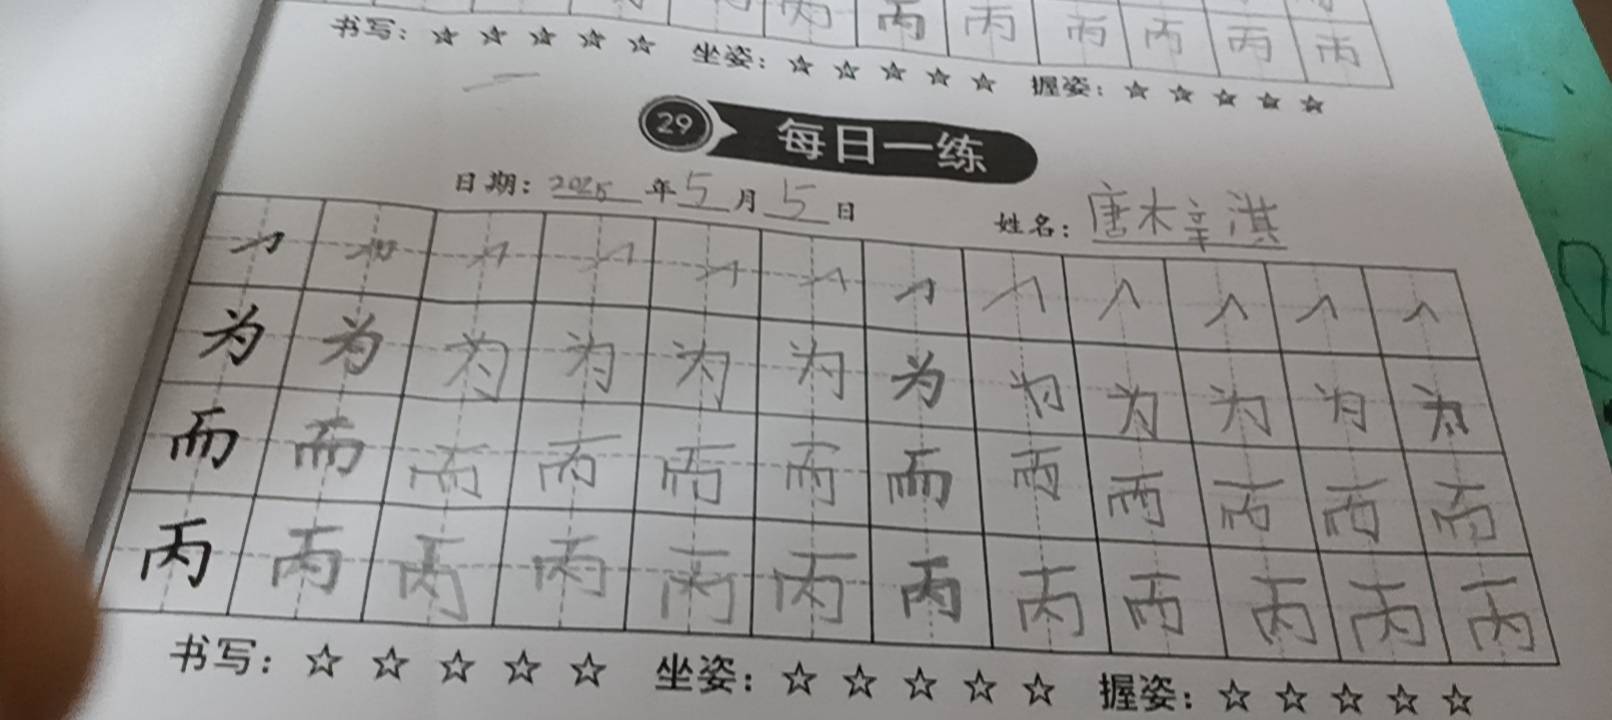 丙 丙 丙 丙 丙 丙 丙
书写：☆ ☆ ☆ ☆ ☆ 坐姿：☆ ☆ ☆ ☆ ☆ 握姿：☆ ☆ ☆ ☆ ☆
29 每日一练
日期：2025年5月5日 姓名：唐木辛淇
为 为 为 为 为 为 为 为 为 为 为 为
而 而 而 而 而 而 而 而 而 而 而 而
丙 丙 丙 丙 丙 丙 丙 丙 丙 丙 丙 丙
书写：☆ ☆ ☆ ☆ ☆ 坐姿：☆ ☆ ☆ ☆ ☆ 握姿：☆ ☆ ☆ ☆ ☆